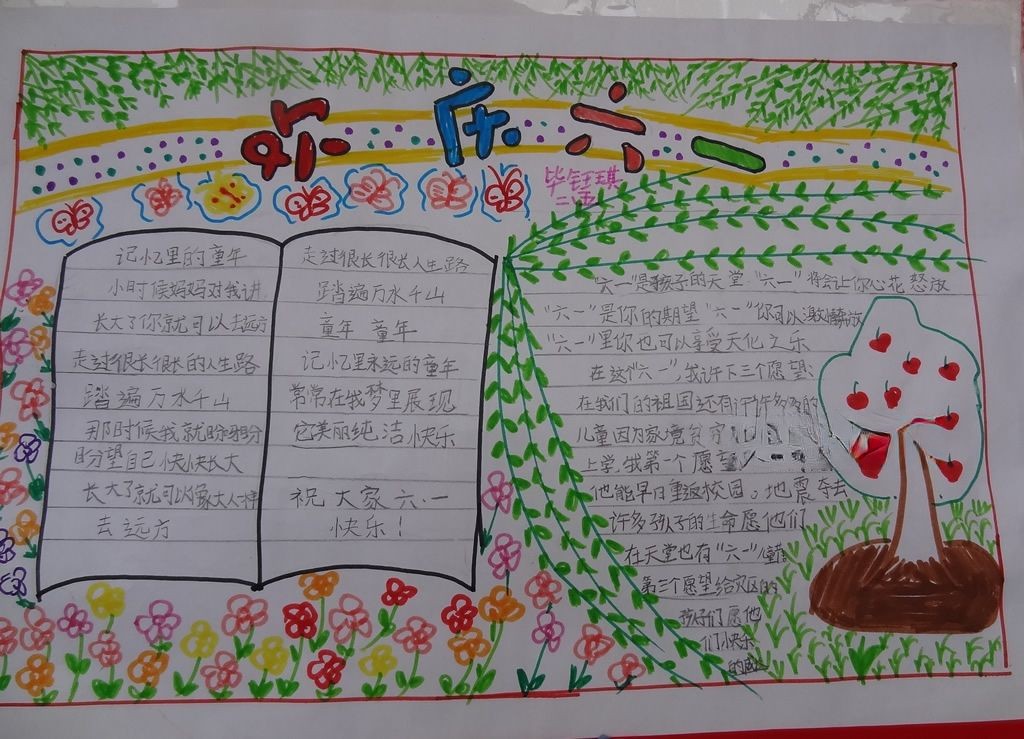 欢庆六一
毕钰琪
记忆里的童年
小时候妈妈对我讲
长大了你就可以去远方
走过很长很长的人生路
踏遍万水千山
那时候我就盼呀盼
盼望自己快快长大
长大了就可以像大人一样
去远方
走过很长很长人生路
踏遍万水千山
童年 童年
记忆里永远的童年
常常在我梦里展现
它美丽纯洁快乐
祝大家六.一
快乐!
"六一"是孩子的天堂."六一"将会让你心花怒放
"六一"是你的期望"六一"你可以激情释放
"六一"里你也可以享受天伦之乐
在这个"六一",我许下三个愿望:
在我们的祖国还有许许多多的
儿童因为家境贫穷
上学,我第一个愿望
他能早日重返校园。地震夺去
许多孩子的生命愿他们
在天堂也有"六一"儿童
第三个愿望给灾区的
孩子们愿他
们快乐
的